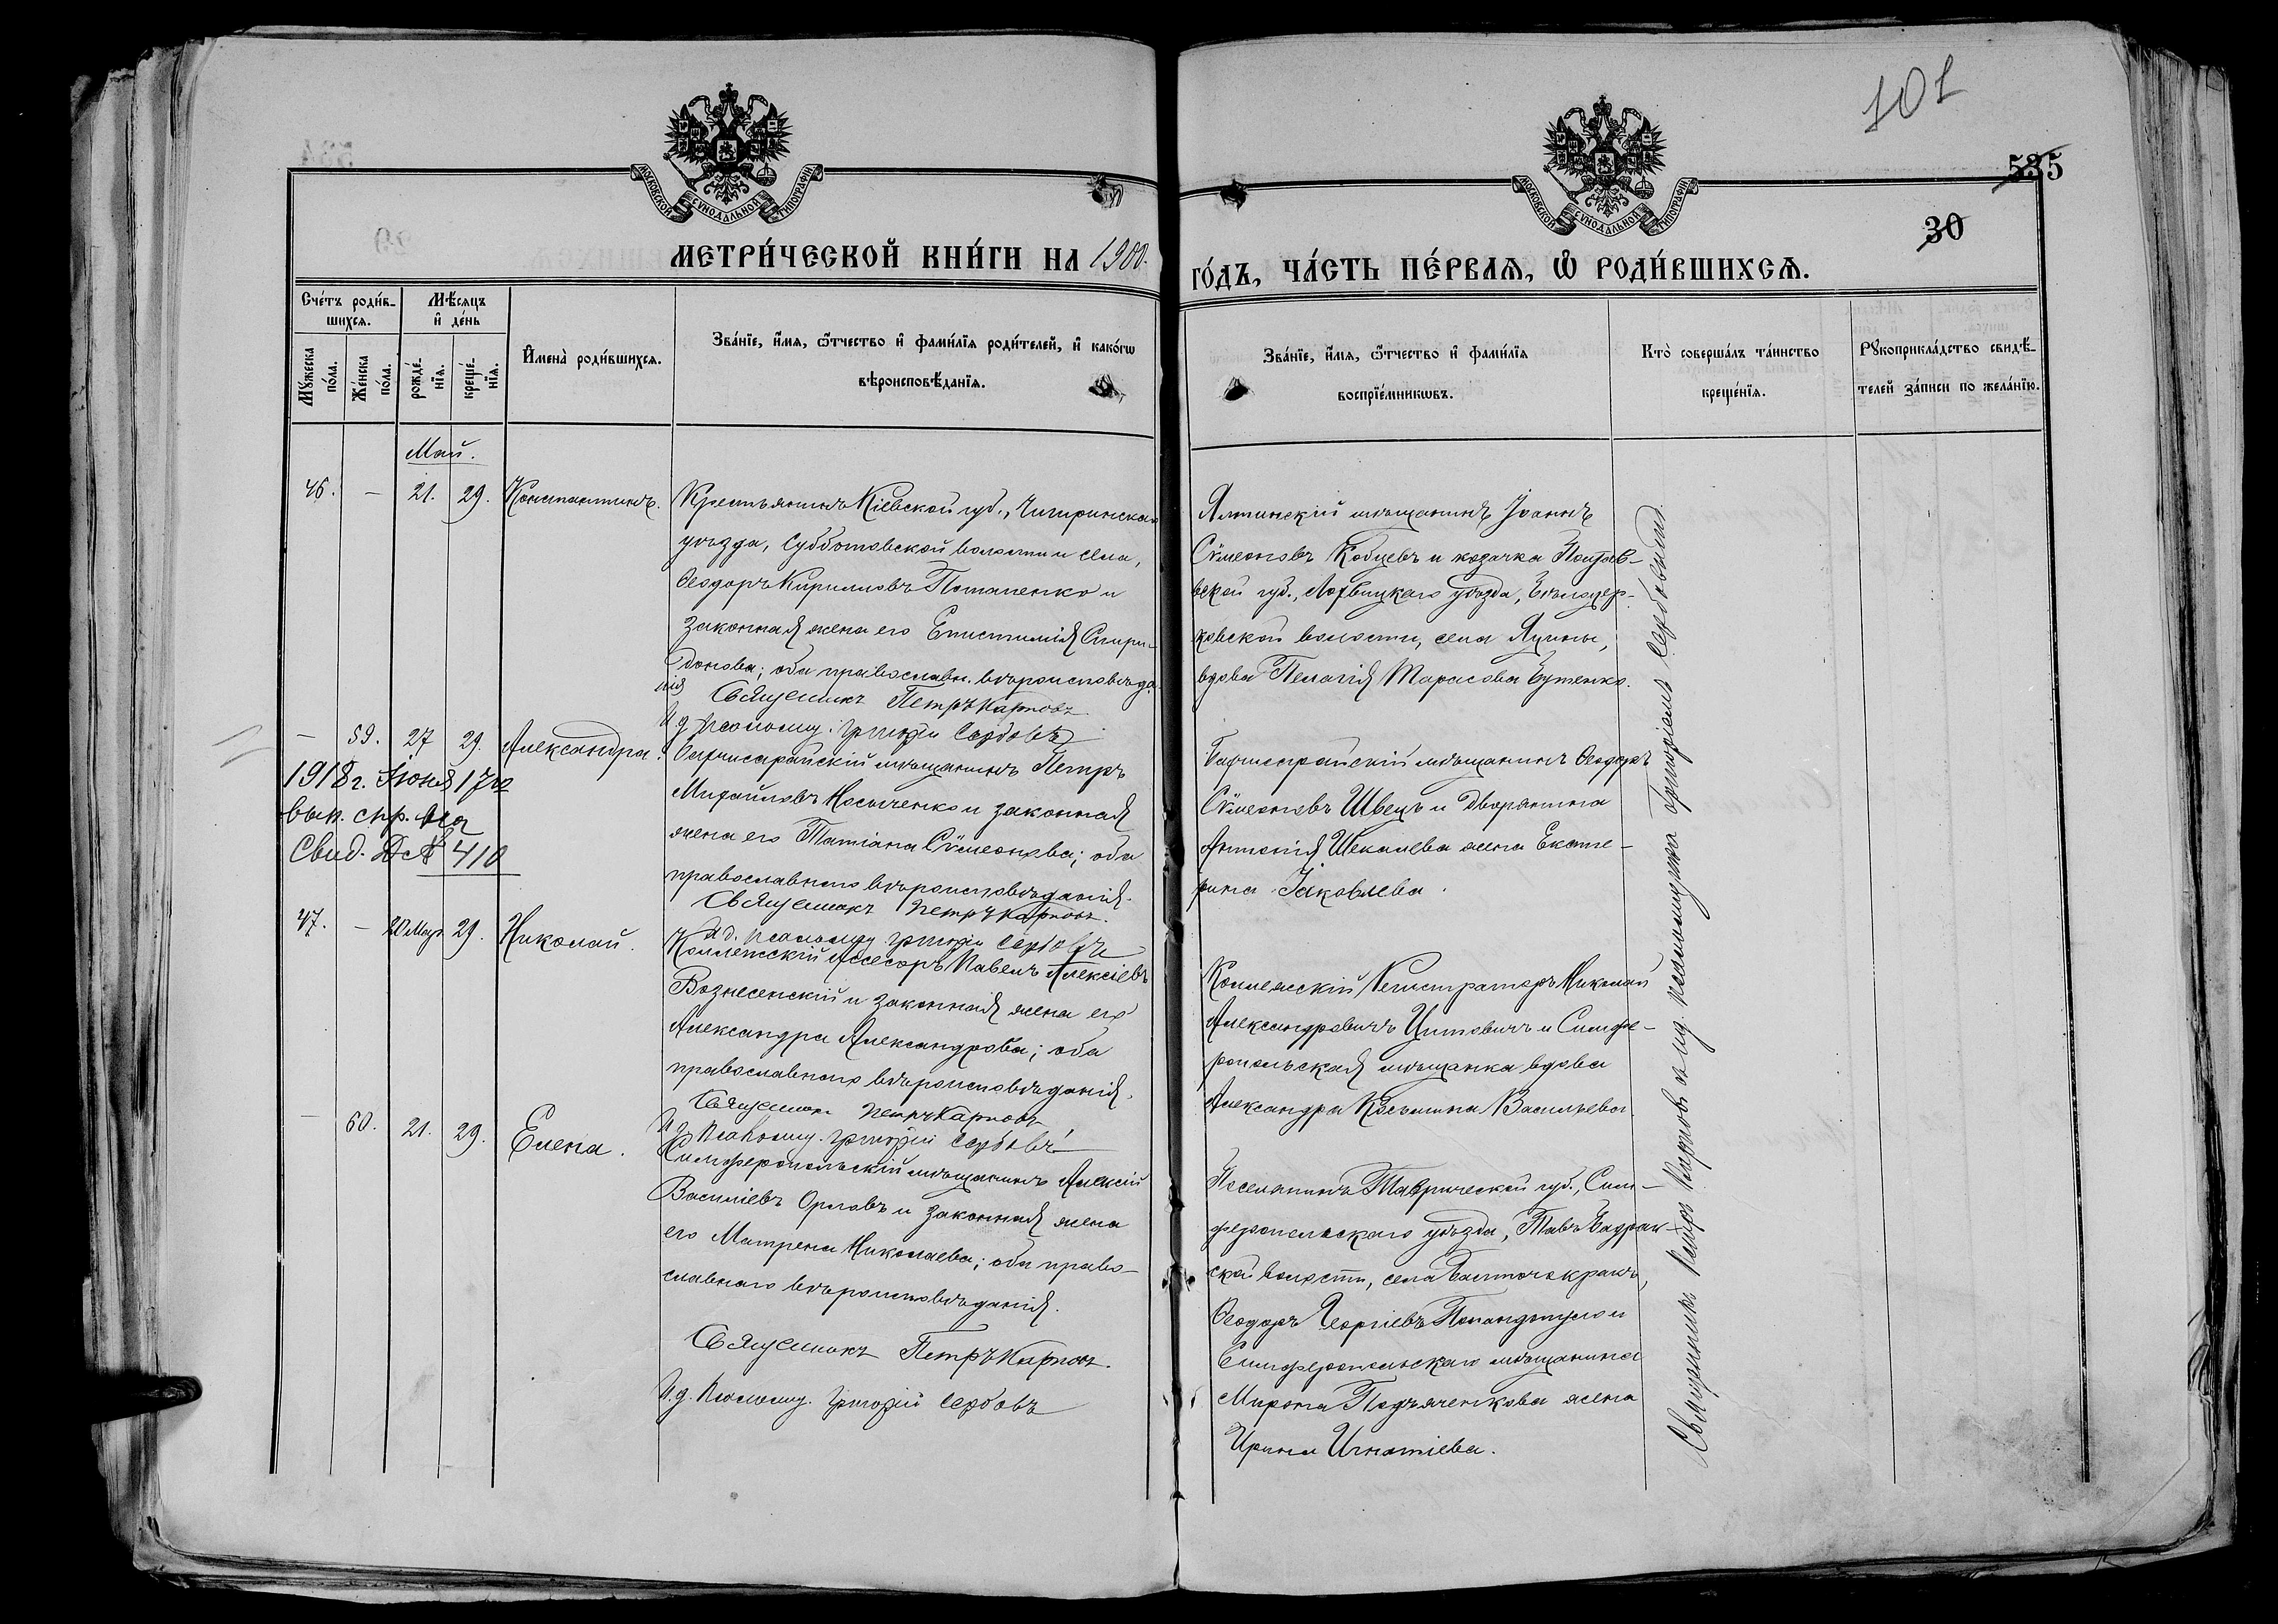 101
535
30
МОСКОВСКОЙ СѴНОДАЛЬНОЙ ТИПОГРАФІИ
МОСКОВСКОЙ СѴНОДАЛЬНОЙ ТИПОГРАФІИ
МЕТРИ́ЧЕСКОЙ КНИ́ГИ НА 1900.
ГО́ДЪ, ЧА́СТЬ ПЕ́РВАЯ, Ѡ РОДИ́ВШИХСЯ.
Счétъ роди́в-
шихся.
Мѣ́сяцъ
и҆ де́нь
Мꙋ́жеска
по́ла.
Же́нска
по́ла.
рожде́-
нїя.
креще́-
нїя.
И҆мена̀ роди́вшихся.
Зва́нїе, и҆́мя, ѻ҆́тчество и҆ фами́лїя роди́телей, и҆ како́гѡ
вѣроисповѣ́данїя.
Зва́нїе, и҆́мя, ѻ҆́тчество и҆ фами́лїя
воспрїе́мникѡвъ.
Кто̀ соверша́лъ та́инство
креще́нїя.
Рꙋкоприкла́дство свидѣ́-
телей за́писи по жела́нїю.
Май.
46. – 21. 29. Константинъ.
Крестьянинъ Кіевской губ., Чигиринскаго
уѣзда, Субботовской волости и села,
Ѳеодоръ Кирилловъ Потапенко и
законная жена его Епистимія Спири-
донова; оба православн. вѣроисповѣда-
нія
Священникъ Петръ Карповъ
И. д. псаломщ. Григорій Сербовъ
Ялтинскій мѣщанинъ Іоаннъ
Сѵмеоновъ Кобцевъ и козачка Полтав-
вской губ., Лохвицкаго уѣзда, Бѣлоцер-
ковской волости, села Яцины,
вдова Пелагія Тарасова Бутенко.
– 59. 27 29. Александра.
Бахчисарайскій мѣщанинъ Петръ
Михайловъ Носиченко и законная
жена его Татіана Сѵмеонова; оба
православнаго вѣроисповѣданія.
Священникъ Петръ Карповъ.
И. д. псаломщ. Григорій Сербовъ
1918 г. Іюня 17го
вып. спр. на
Свид. № 410
Бахчисарайскій мѣщанинъ Ѳеодоръ
Сѵмеоновъ Швецъ и дворянина
Антонія Шекалева жена Екате-
рина Іаковлева.
47. – 20 Мая 29. Николай.
Коллежскій Ассесоръ Павелъ Алексіевъ
Вознесенскій и законная жена его
Александра Александрова; оба
православнаго вѣроисповѣданія.
Священникъ Петръ Карповъ
И. д. Псаломщ. Григорій Сербовъ
Коллежскій Регистраторъ Николай
Александровичъ Цитовичъ и Симфе-
ропольская мѣщанка вдова
Александра Косьмина Васильева
– 60. 21. 29. Елена.
Симферопольскій мѣщанинъ Алексій
Василіевъ Орловъ и законная жена
его Матрена Николаева; оба право-
славнаго вѣроисповѣданія.
Священникъ Петръ Карповъ.
И. д. Псаломщ. Григорій Сербовъ
Поселянинъ Таврической губ., Сим-
феропольскаго уѣзда,
ской волости, села
Ѳеодоръ Георгіевъ и
Симферопольскаго мѣщанина
Мирона Подъяченкова жена
Ирина Игнатіева.
Священникъ Петръ Карповъ и и. д. псаломщика Григорій Сербовъ